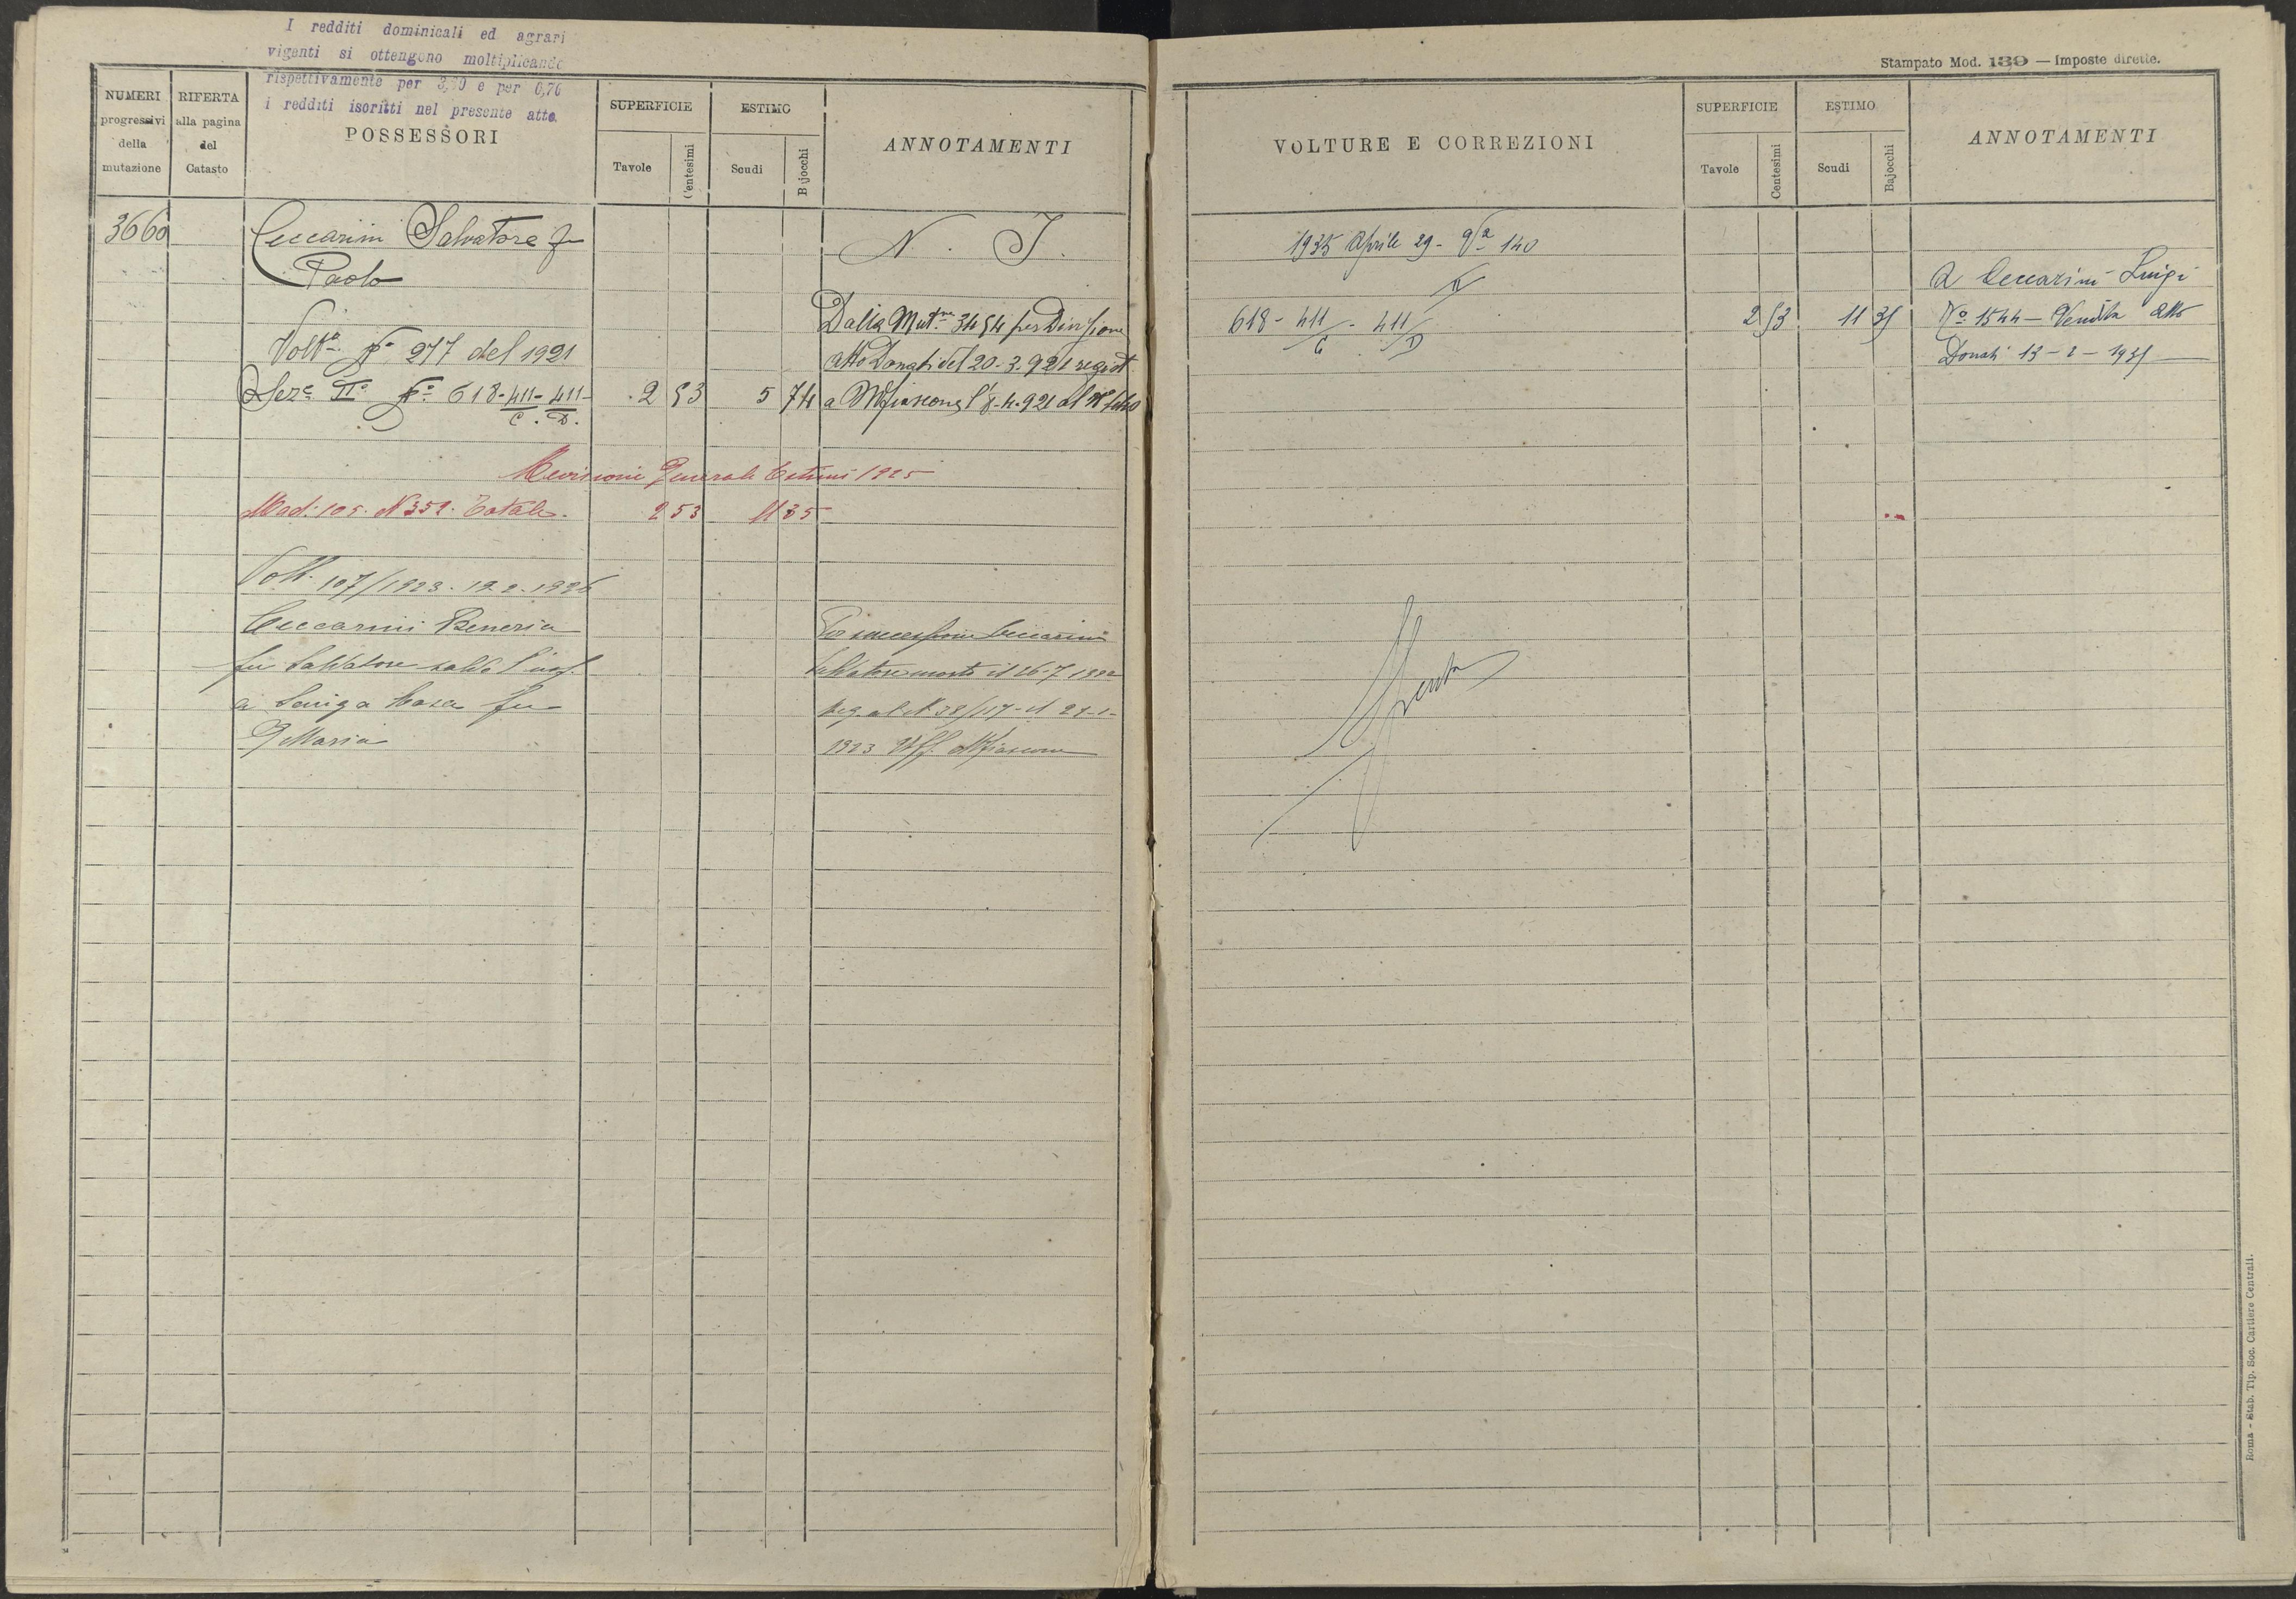 I redditi dominicali ed agrari
vigenti si ottengono moltiplicando
rispettivamente per 3,20 e per 6,76
i redditi iscritti nel presente atto
NUMERI progressivi della mutazione
RIFERTA alla pagina del Catasto
POSSESSORI
SUPERFICIE
Tavole
Centesimi
ESTIMO
Scudi
Bajocchi
ANNOTAMENTI
3660
Ceccarini Salvatore fu
Paolo
N. I.
Volta. No 277 del 1921
Seze IIa No 618-411-411
C. D.
2 53
5 74
Dalla Mutne 3454 per Divisione
atto Donati del 20-3-921 regist
a Mfiascone l'8-4-921 al No
Revisione Generale Estimi 1925
Mad: 105. N 352. Totale.
2 53
11 35
Volt. 107/1923. 19.2.1926
Ceccarini
fu Salvatore salvo l'usuf.
a Rosa fu
G Maria
Per successione Ceccarini
Salvatore morto il 26-7 1922
Reg. al N 38/117 - il
1923 Uff. Mfiascone
Stampato Mod. 139 — Imposte dirette.
VOLTURE E CORREZIONI
SUPERFICIE
Tavole
Centesimi
ESTIMO
Scudi
Bajocchi
ANNOTAMENTI
1935 Aprile 29 - 140
II
618 - 411 - 411
C D
2 53
11 35
a Ceccarini Luigi
No 1544 - Vendita atto
Donati 13-2-1935
Spenta
Roma - Stab. Tip. Soc. Cartiere Centrali.